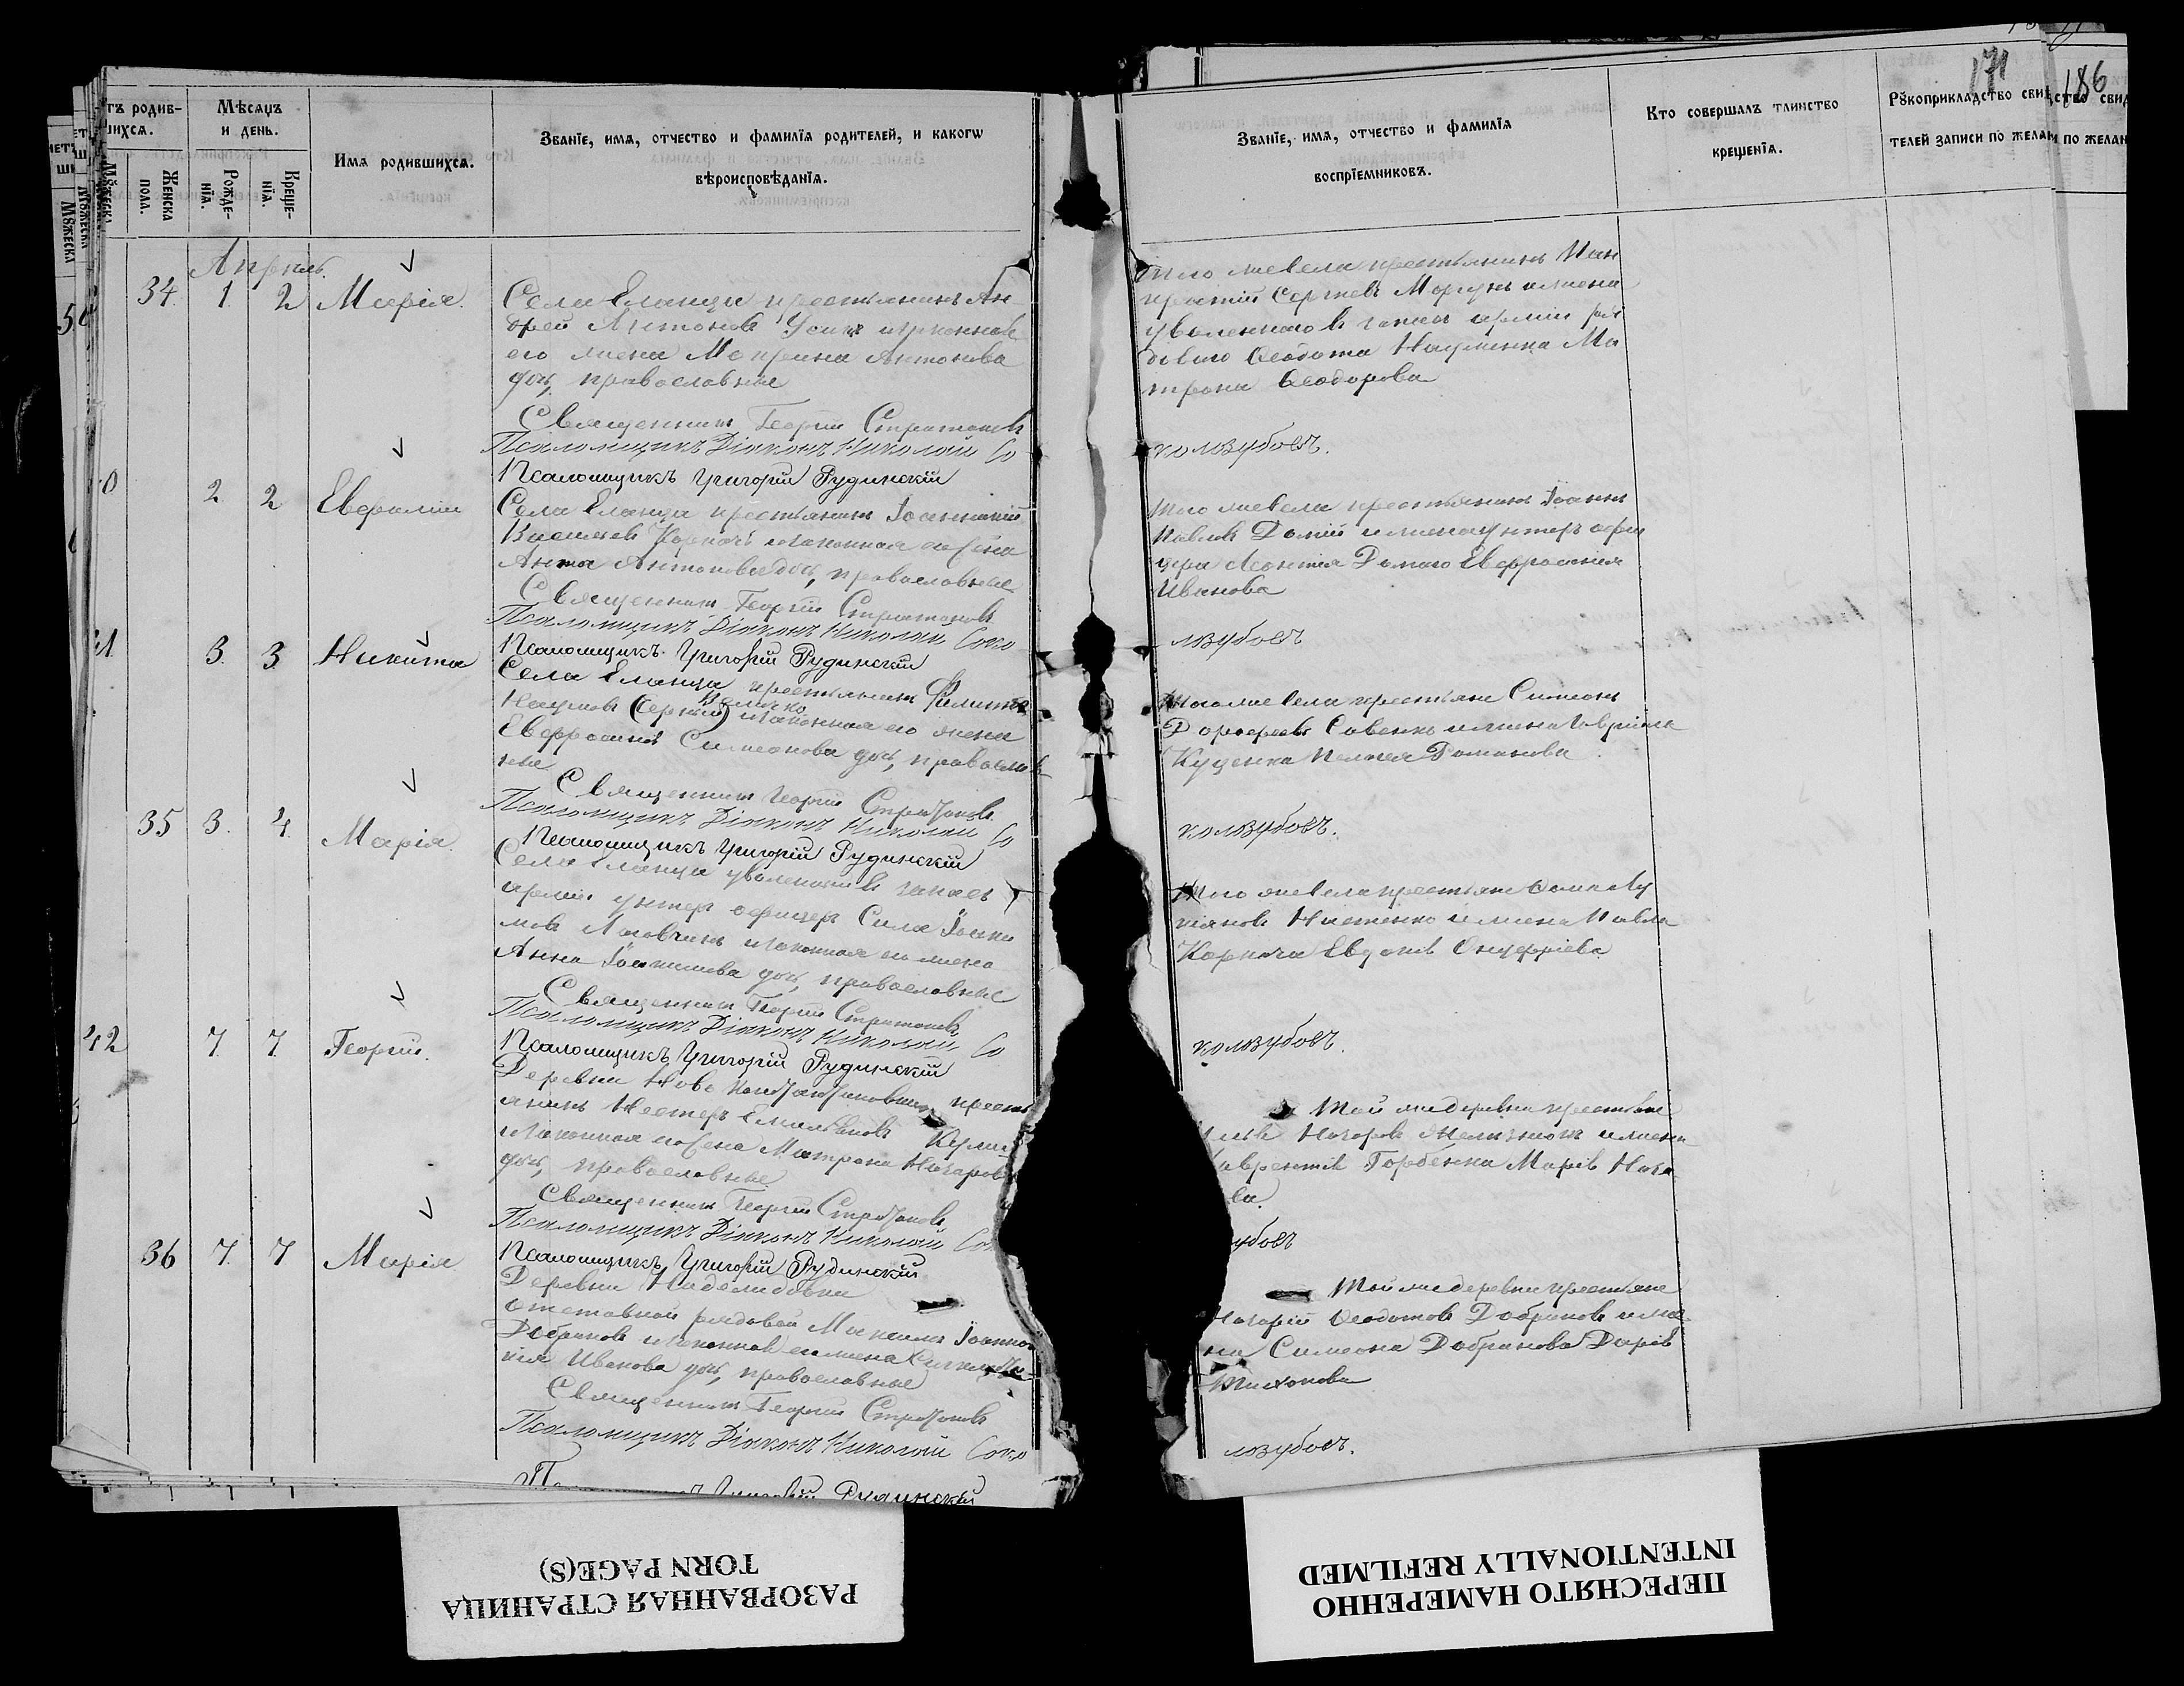 171
186
тъ родив-
шихся.
Мѣсяцъ
и день.
Имя родившихся.
Званїе, имя, отчество и фамилїя родителей, и какогѡ
вѣроисповѣданїя.
Мꙋжеска
Женска
пола.
Рожде-
нїя.
Креще-
нїя.
Апрель.
34. 1. 2 Марія.
Села Еланца крестьянинъ Ан
дрей Антоновъ Усикъ и законная
его жена Мокрина Антонова
дочь, православные
Священникъ Георгій Стратоновъ
Псаломщикъ Діаконъ Николай Со
Псаломщикъ Григорій Рудинскій
40 2 2 Евфимій
Села Еланца крестьянинъ Іоанникій
Васильевъ Корначъ и законная его жена
Анна Антонова дочь, православные
Священникъ Георгій Стратоновъ
Псаломщикъ Діаконъ Николай Соко
Псаломщикъ Григорій Рудинскій
41. 3. 3 Никита
Села Еланца крестьянинъ Филиппъ
Наумовъ (Серный) и законная его жена
Евфросинія Симеонова дочь, православ
ные
Священникъ Георгій Стратоновъ
Псаломщикъ Діаконъ Николай Со
Псаломщикъ Григорій Рудинскій
35 3. 4. Марія.
Села Еланца уволенный въ запасъ
арміи унтеръ офицеръ Сила Іоаки
мовъ и законная его жена
Анна Іоакимова дочь, православные
Священникъ Георгій Стратоновъ
Псаломщикъ Діаконъ Николай Со
Псаломщикъ Григорій Рудинскій
42 7. 7. Георгій.
Деревни Ново Константиновки крестья
янинъ Нестеръ Емельяновъ
и законная его жена Матрона Назарова
дочь, православные
Священникъ Георгій Стратоновъ
Псаломщикъ Діаконъ Николай Сок
Псаломщикъ Григорій Рудинскій
36 7. 7 Марія
Деревни
отставной рядовой Максимъ Іоанновъ
Добрановъ и законная его жена
кія Иванова дочь, православные
Священникъ Георгій Стратоновъ
Псаломщикъ Діаконъ Николай Соко
Псаломщикъ Григорій Рудинскій
Званїе, имя, отчество и фамилїя
воспрїемниковъ.
Кто совершалъ таинство
крещенїя.
Рꙋкоприкладство свид
телей записи по желан
ство свид
по желан
Того же села крестьянинъ Пан
кратій Сергіевъ Моргунъ и жена
уволеннаго въ запасъ арміи ря
дового Ѳеодота Науменка Ма
трона Ѳеодорова
колзубовъ.
Того же села крестьянинъ Іоаннъ
Павловъ Домній и жена унтеръ офи
цера Леонтія Домаго Евфросинія
Иванова
лзубовъ
Того же села крестьяне Симеонъ
Дорофеевъ Савенко и жена Гавріила
Куценка Пелагея Романова
колзубовъ.
Того же села крестьяне Ѳома Лу
кіяновъ Настенко и жена Павла
Корнача Евдокія Онуфріева
колзубовъ.
Той же деревни крестьяне
Назаровъ и жена
аврентія Горбенка Марія Наза
ва.
убовъ
Той же деревни крестьяне
Назарій Ѳеодотовъ Добрановъ и же
на Симеона Добранова Дарія
Тихонова
лзубовъ.
РАЗОРВАННАЯ СТРАНИЦА
TORN PAGE(S)
ПЕРЕСНЯТО НАМЕРЕННО
INTENTIONALLY REFILMED